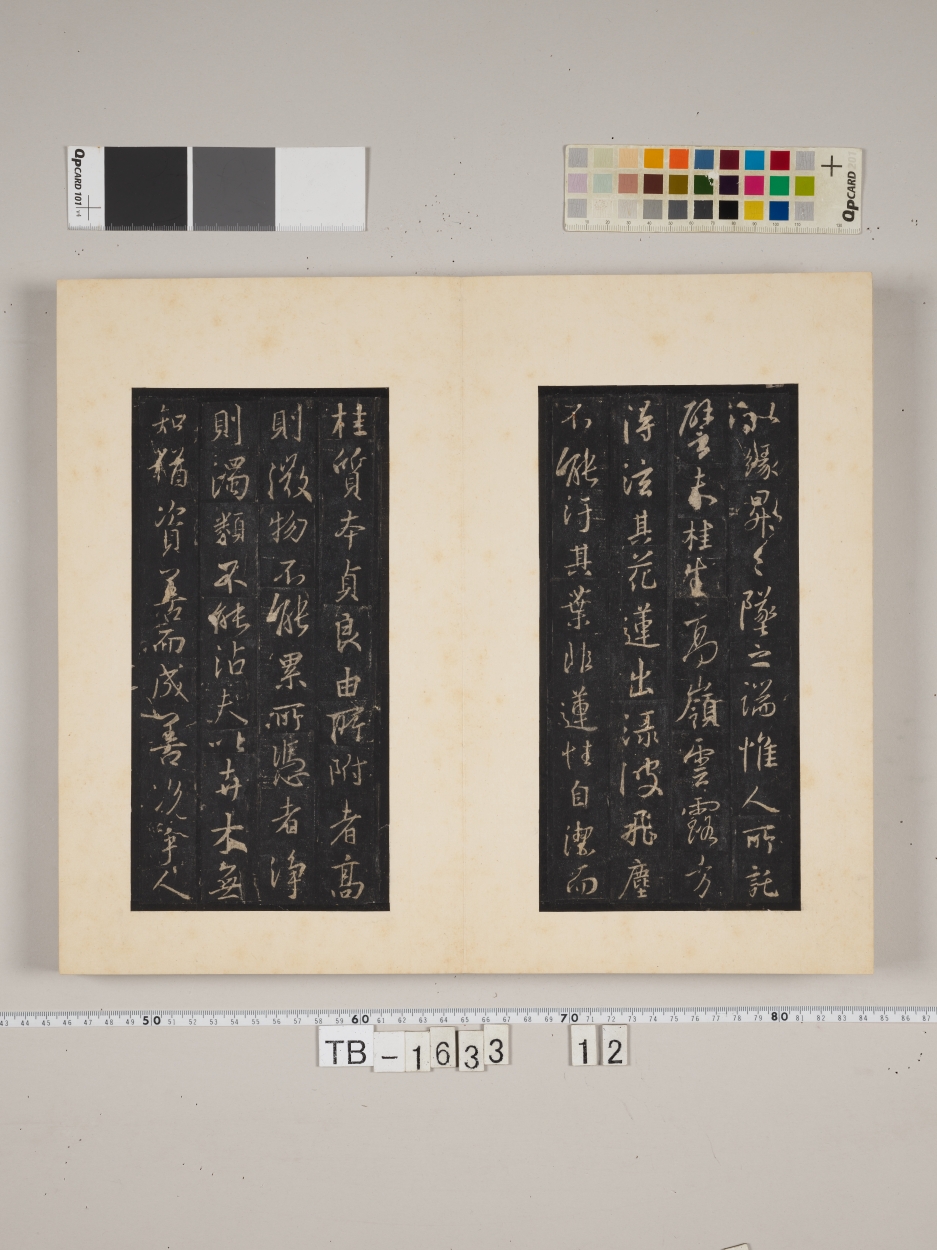 以緣昇々墜之端惟人所託
譬夫桂生高嶺雲露方
得泫其花蓮出淥波飛塵
不能汙其葉非蓮性自潔而
桂質本貞良由所附者高
則微物不能累所憑者淨
則濁類不能沾夫以卉木無
知猶資善而成善況乎人
QPCARD 101 v4
QPCARD 201
43 44 45 46 47 48 49 50 51 52 53 54 55 56 57 58 59 60 61 62 63 64 65 66 67 68 69 70 71 72 73 74 75 76 77 78 79 80 81 82 83 84 85 86 87
TB-1633 12